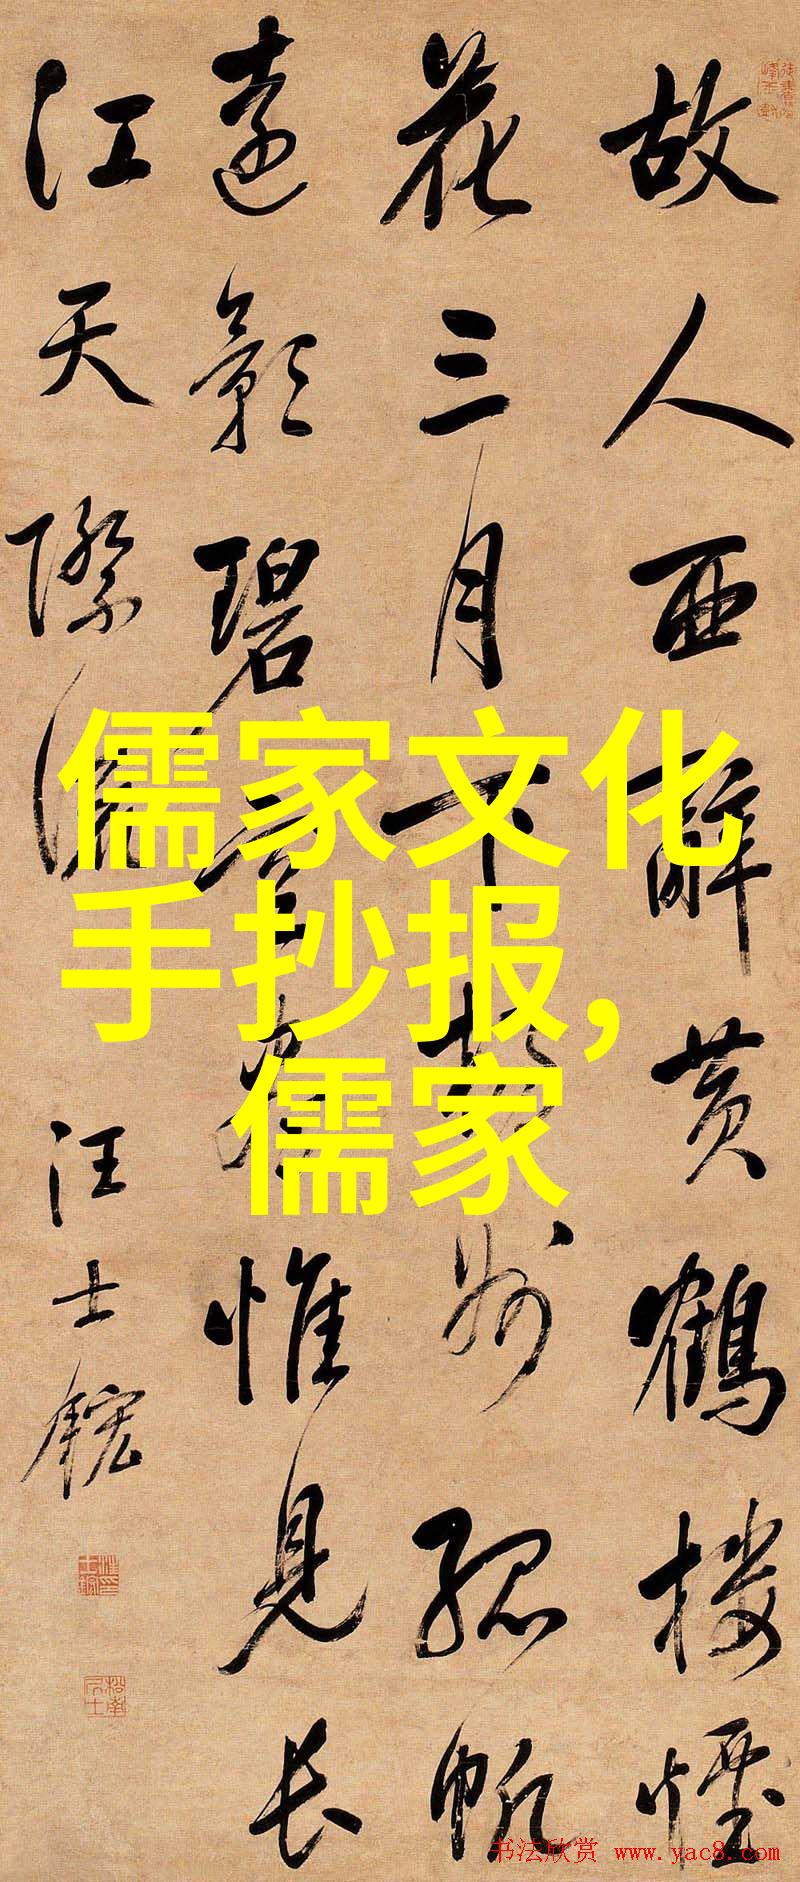 故人西辭黄鶴楼煙
花三月下揚州孤帆
遠影碧空盡惟見长
江天際流
汪士鋐
儒家文化
手抄报,
儒家
书法欣赏 www.yac8.com